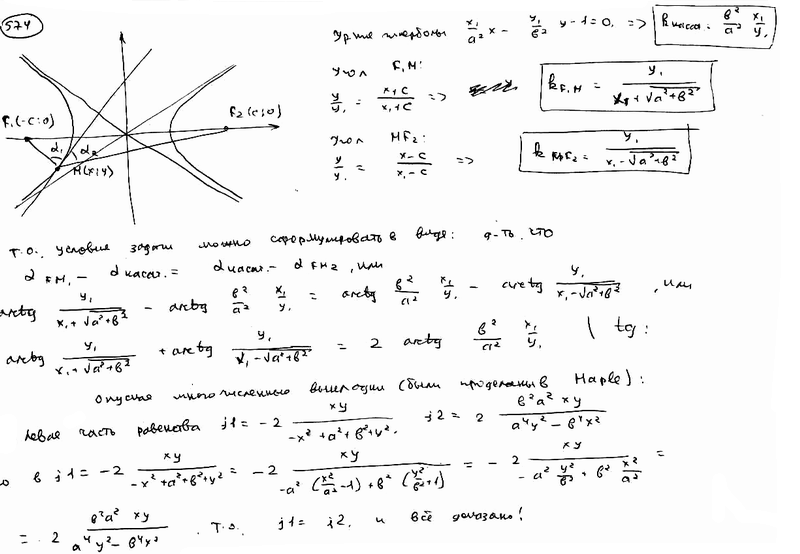 574
Ур-ние гиперболы x₁/a² x - y₁/b² y - 1 = 0, => k касат. = b²/a² x₁/y₁
F₁(-c;0)
F₂(c;0)
α₁ α₂
M(x;y)
F₁M:
y/y₁ = (x+c)/(x₁+c) => k F₁M = y₁/(x₁+√(a²+b²))
MF₂:
y/y₁ = (x-c)/(x₁-c) => k MF₂ = y₁/(x₁-√(a²+b²))
Т.о. условие задачи можно сформулировать в виде: д-ть, что
α FM₁ - α касат. = α касат. - α FM2, или
arctg y₁/(x₁+√(a²+b²)) - arctg b²/a² x₁/y₁ = arctg b²/a² x₁/y₁ - arctg y₁/(x₁-√(a²+b²)), или
arctg y₁/(x₁+√(a²+b²)) + arctg y₁/(x₁-√(a²+b²)) = 2 arctg b²/a² x₁/y₁ | tg:
Опуская многочисленные выкладки (были проделаны в Maple):
левая часть равенства j1 = -2 xy/(-x²+a²+b²+y²), j2 = 2 b²a² xy/(a⁴y²-b⁴x²)
о в j1 = -2 xy/(-x²+a²+b²+y²) = -2 xy/(-a²(x²/a²-1)+b²(y²/b²+1)) = -2 xy/(-a² y²/b² + b² x²/a²) =
= 2 b²a² xy/(a⁴y²-b⁴x²). Т.о. j1 = j2, и всё доказано!